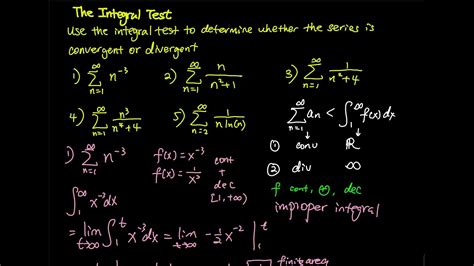 The Integral Test
Use the integral test to determine whether the series is
convergent or divergent
1) ∞ Σ n=1 n⁻³ 2) ∞ Σ n=1 n/(n²+1) 3) ∞ Σ n=1 1/(n²+4)
4) ∞ Σ n=1 n³/(n⁴+4) 5) ∞ Σ n=2 1/(n ln(n)) ∞ Σ n=1 an < ∫₁^∞ f(x) dx
① conv ℝ
② div ∞
1) ∞ Σ n=1 n⁻³ f(x) = x⁻³ cont
f(x) = 1/x³ +
dec
[1, +∞)
f cont, ⊕, dec
improper integral
∫₁^∞ x⁻³dx
= lim t→∞ ∫₁^t x⁻³dx = lim t→∞ -1/2 x⁻² |₁^t
finite area